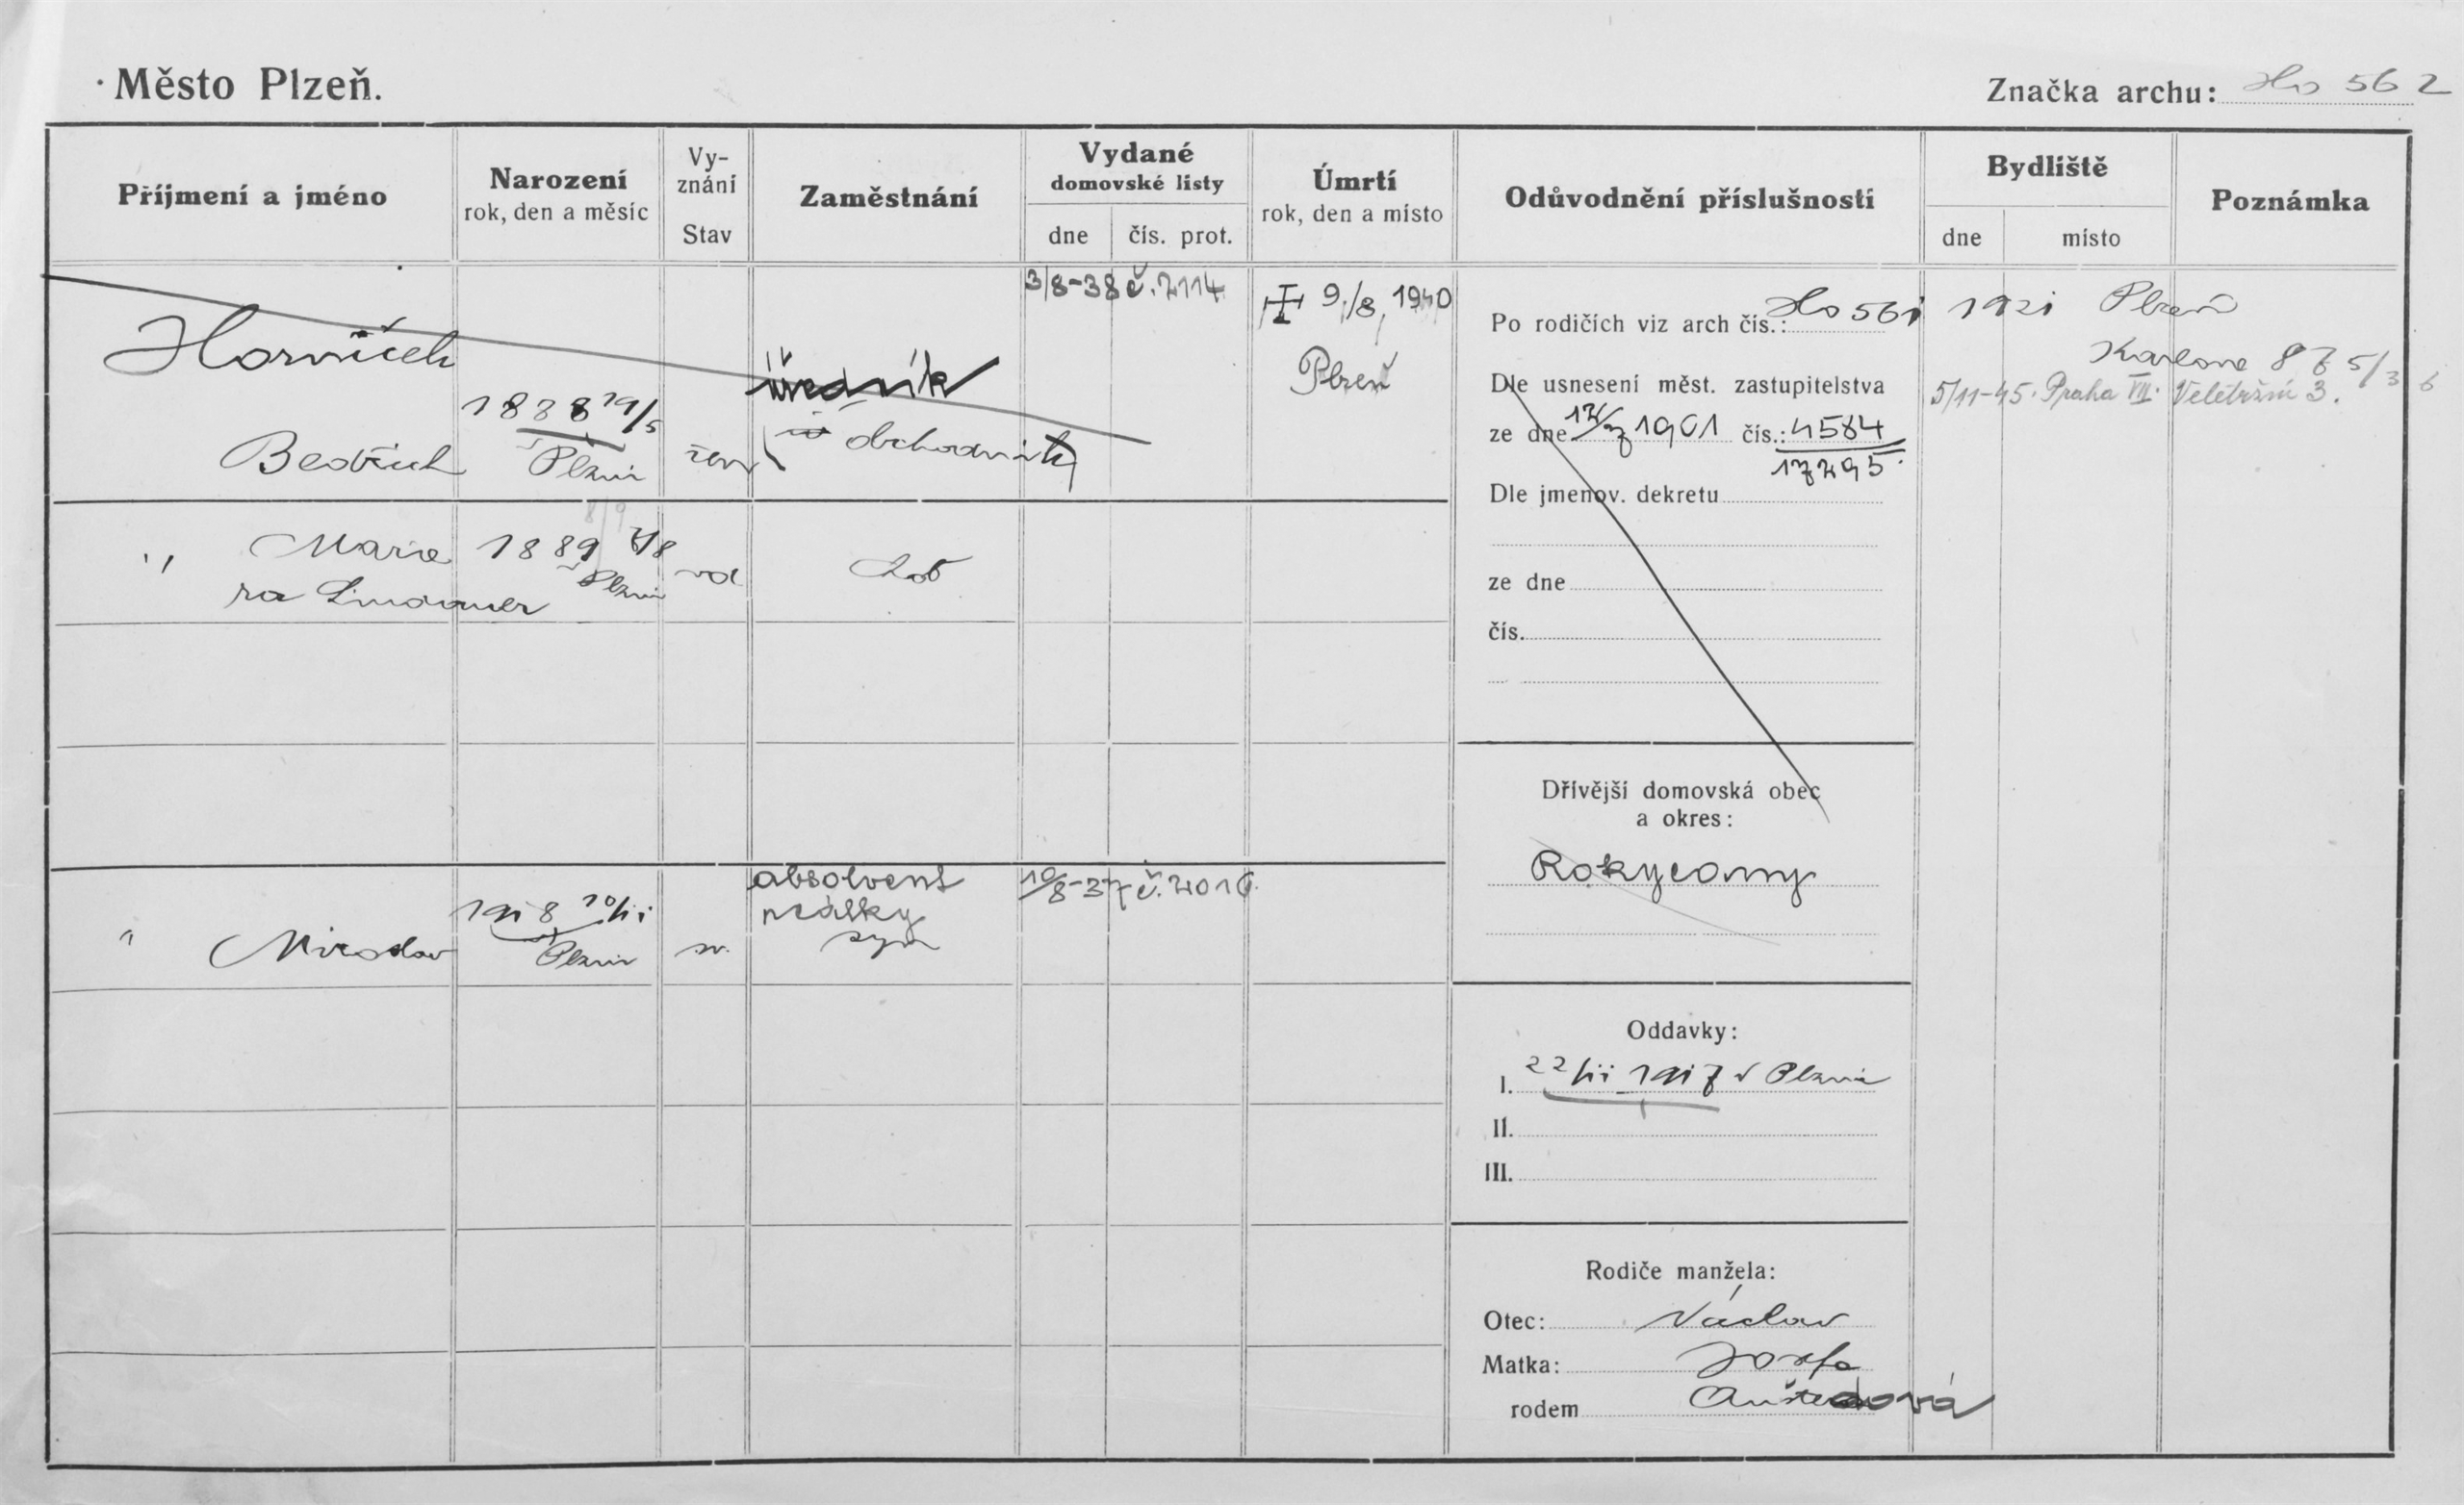 Město Plzeň.
Značka archu: Ho 562
Příjmení a jméno
Narození
rok, den a měsíc
Vy-
znání
Stav
Zaměstnání
Vydané
domovské listy
dne
čís. prot.
Úmrtí
rok, den a místo
Odůvodnění příslušnosti
Bydliště
dne
místo
Poznámka
Horníček
Bedřich
1888 29/5
Plzni
žen
úředník
obchodník
3/8-38 č. 2114
9./8, 1940
Plzeň
" Marie
roz Lindauer
1889
8/9
Plzni
vd
chob
" Miroslav
1918 10/11
Plzni
sv.
absolvent
reálky
syn
10/8-37 č. 2016
Po rodičích viz arch čís.: Ho 561
Dle usnesení měst. zastupitelstva
ze dne 1901 čís.: 4584
17295
Dle jmenov. dekretu
ze dne
čís.
Dřívější domovská obec
a okres:
Rokycany
Oddavky:
I. 22/11 1917 v Plzni
II.
III.
Rodiče manžela:
Otec: Václav
Matka: Josefa
rodem
1921 Plzeň
Karlova 875/36
5/11-45. Praha VII. Veletržní 3.